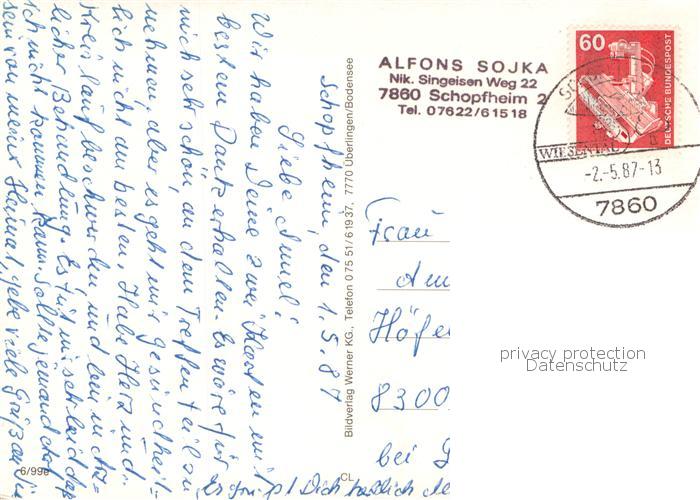 Schopfheim, den 1.5.87
Liebe Annel!
Wir haben Deine zwei Karten mit
bestem Dank erhalten. Es wäre für
mich sehr schön, an dem Treffen teilzu
nehmen, aber es geht mir gesundheit=
lich nicht am besten. Habe Herz und
Kreislaufbeschwerden und bin in ärz=
licher Behandlung. Es tut mir sehr leid das
ich nicht kommen kann. Sollte jemand da
sein von meiner Heimat, gebe viele Grüße an sie
Es grüßt Dich herzlich
ALFONS SOJKA
Nik. Singeisen Weg 22
7860 Schopfheim 2
Tel. 07622/61518
60
DEUTSCHE BUNDESPOST
WIESENTAL
-2.-5.87-13
7860
Frau
Höfe
8300
bei
privacy protection
Datenschutz
Bildverlag Werner KG., Telefon 0 75 51/6 19 37, 7770 Überlingen/Bodensee
6/99e
CL